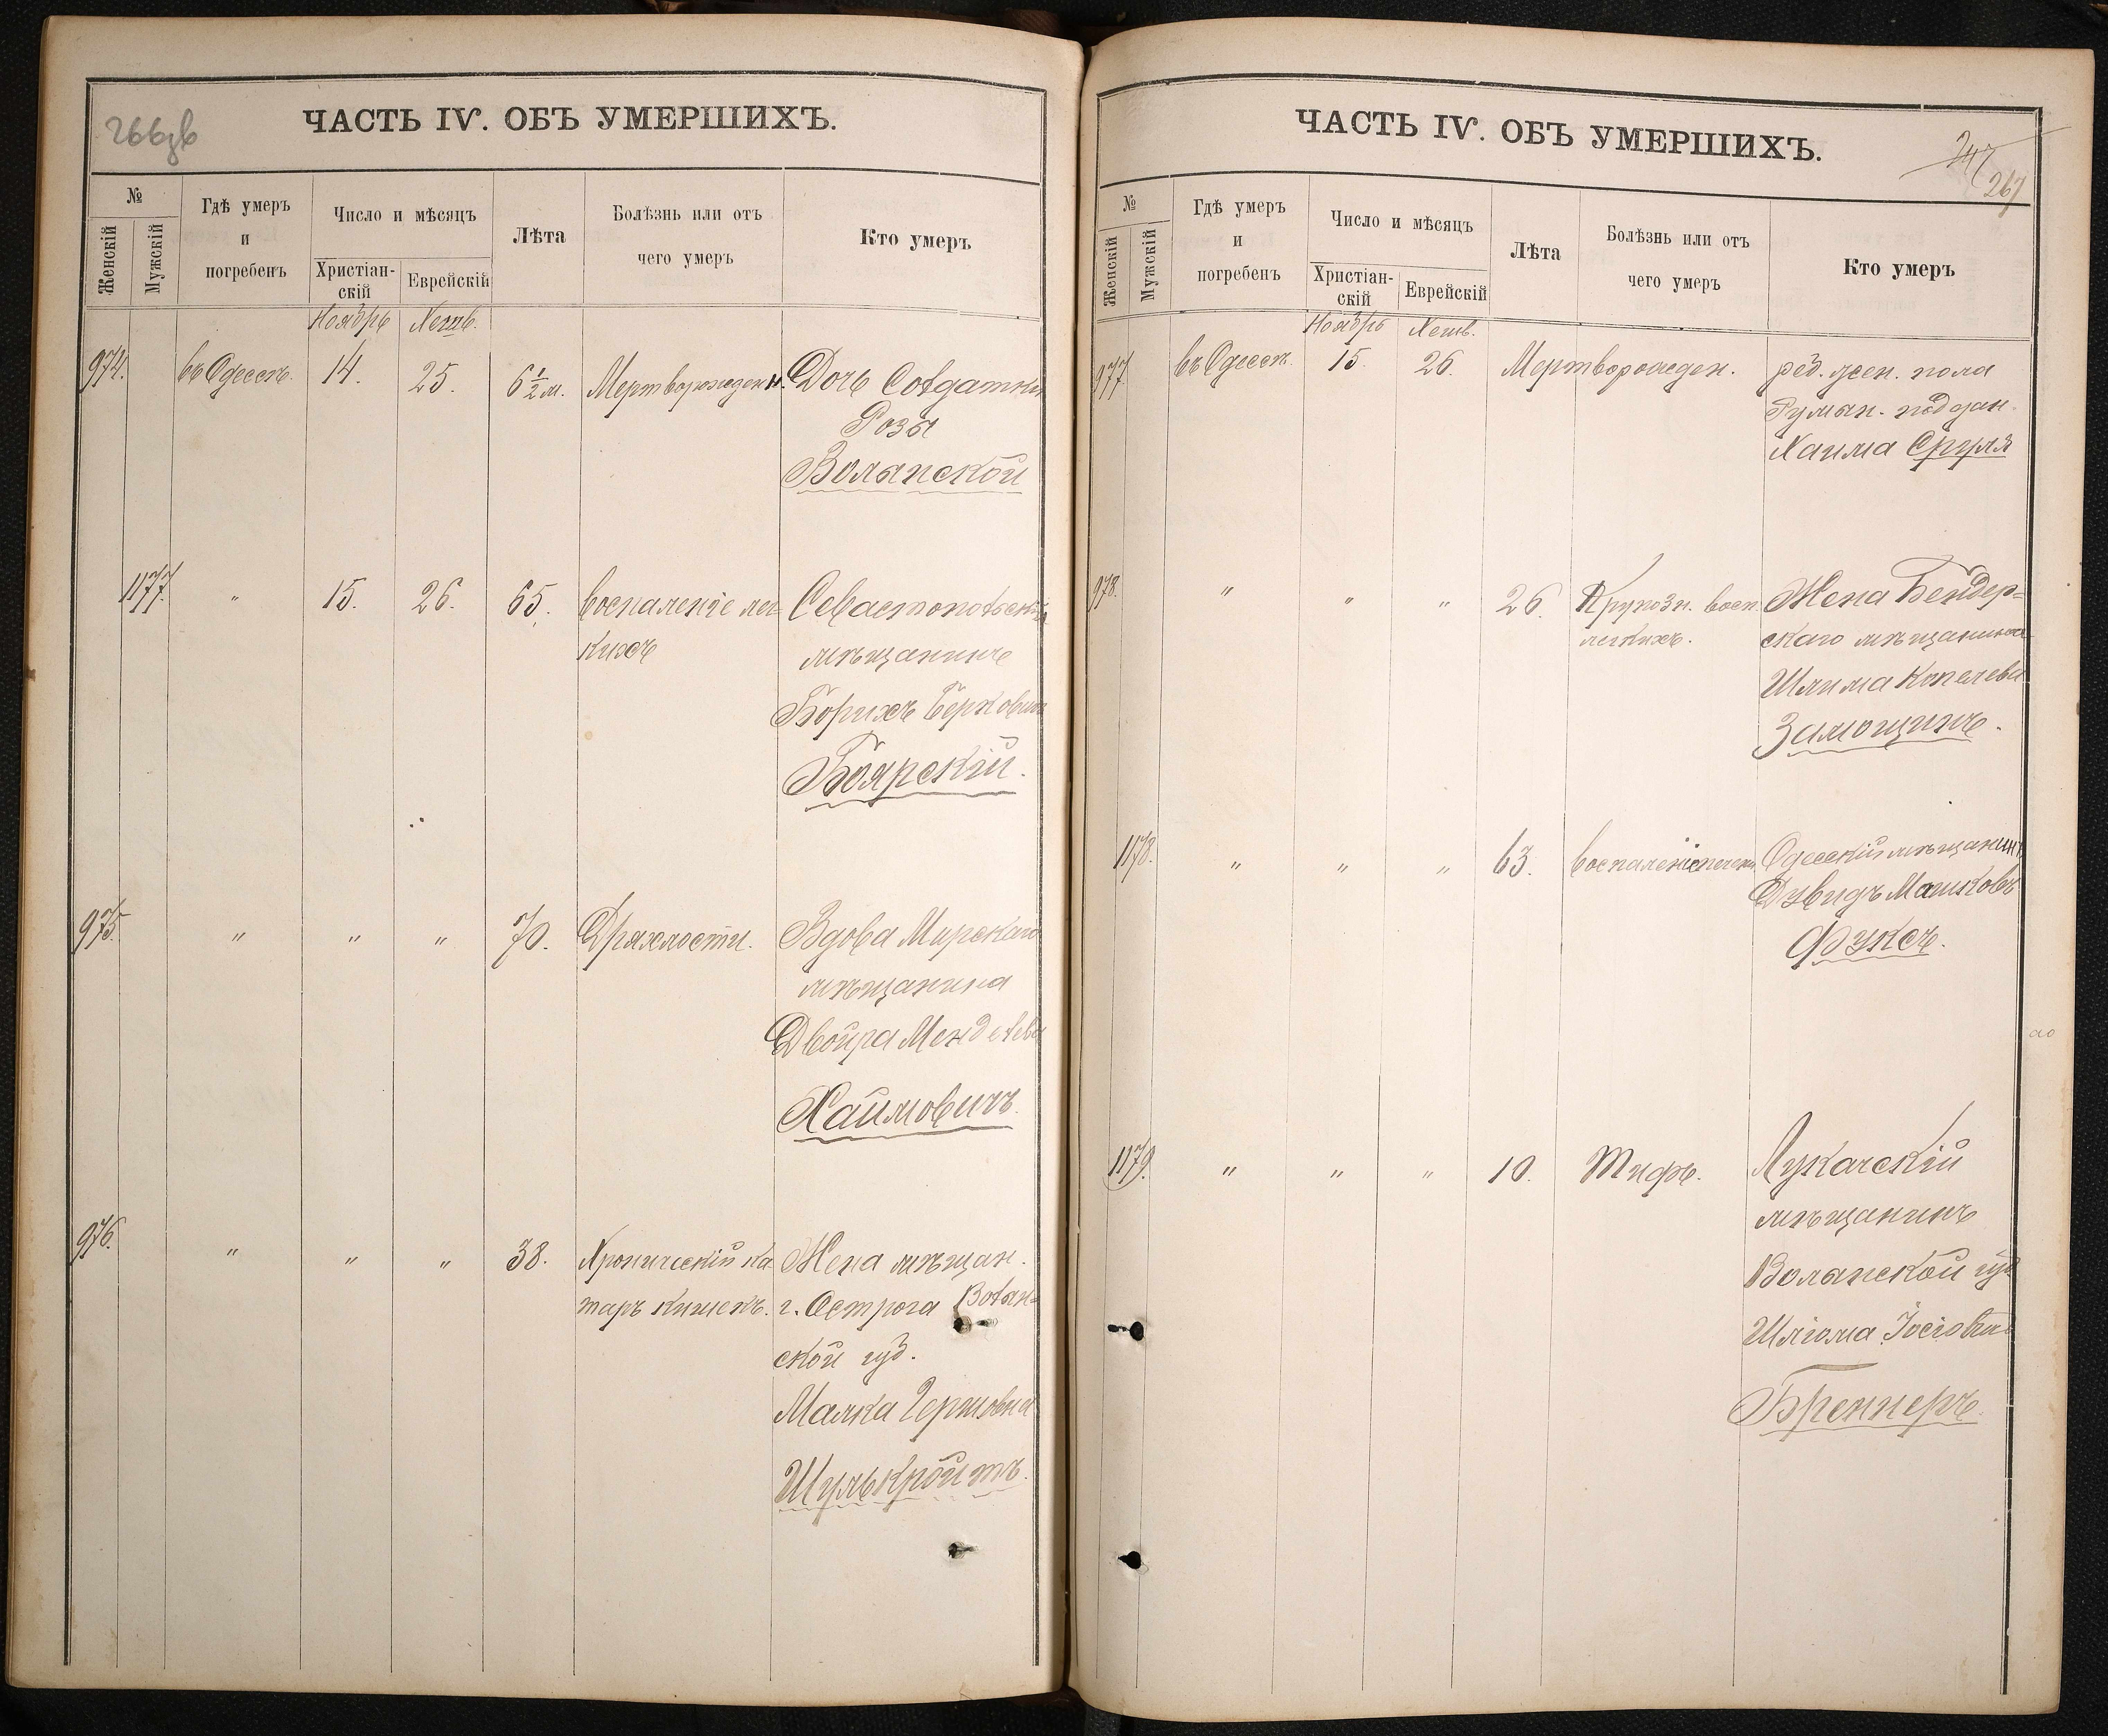 266зв
ЧАСТЬ IV. ОБЪ УМЕРШИХЪ.
№
Женскій
Мужскій
Гдѣ умеръ
и
погребенъ
Число и мѣсяцъ
Христіан-
скій
Еврейскій
Лѣта
Болѣзнь или отъ
чего умеръ
Кто умеръ
Ноябрь Хешв.
974. въ Одессѣ. 14. 25. 6½ м. Мертворожденн. Дочь Солдатки
Розы
Волянской
1177. " 15. 26. 65. воспаленіе лег-
кихъ
Севастопольскій
мѣщанинъ
Борихъ Берковичъ
Боярскій.
975. " " " 70. Дряхлости. Вдова Мирскаго
мѣщанина
Двойра Менделева
Хаймовичъ.
976. " " " 38. Хроническій ка-
таръ кишекъ.
Жена мѣщан.
г. Острога Волын-
ской губ.
Малка Гершовна
Шулькройтъ.
ЧАСТЬ IV. ОБЪ УМЕРШИХЪ.
247
267
№
Женскій
Мужскій
Гдѣ умеръ
и
погребенъ
Число и мѣсяцъ
Христіан-
скій
Еврейскій
Лѣта
Болѣзнь или отъ
чего умеръ
Кто умеръ
Ноябрь Хешв.
977. въ Одессѣ. 15. 26. Мертворожден. реб. жен. пола
Румын. поддан.
Хаима Сруля
978. " " " 26. Крупозн. восп.
легкихъ.
Жена Бендер-
скаго мѣщанина
Шлима Копелева
Замощинъ.
1178. " " " 63. воспаленіе печени Одесскій мѣщанинъ
Дувидъ Машковъ
Фуксъ.
1179. " " " 10. Тифъ. Лукачскій
мѣщанинъ
Волынской губ
Шліома Іосіовичъ
Бреннеръ.